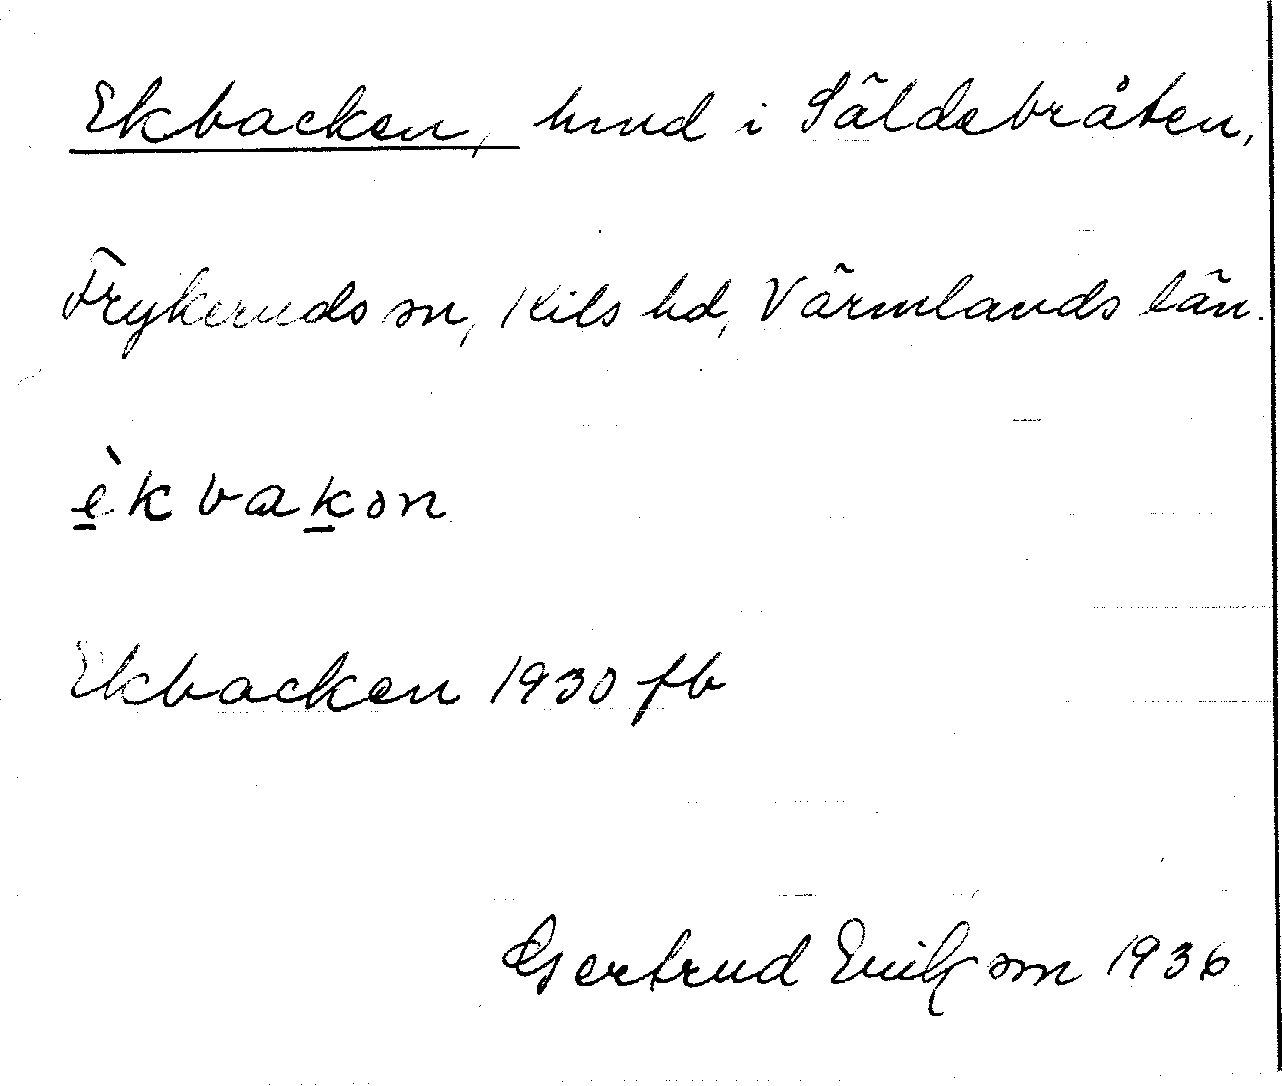 Ekbacken, hmd i Säldebråten,
Frykeruds sn, Kils hd, Värmlands län.
èkbakən
Ekbacken 1930 fb
Gertrud Eriksson 1936